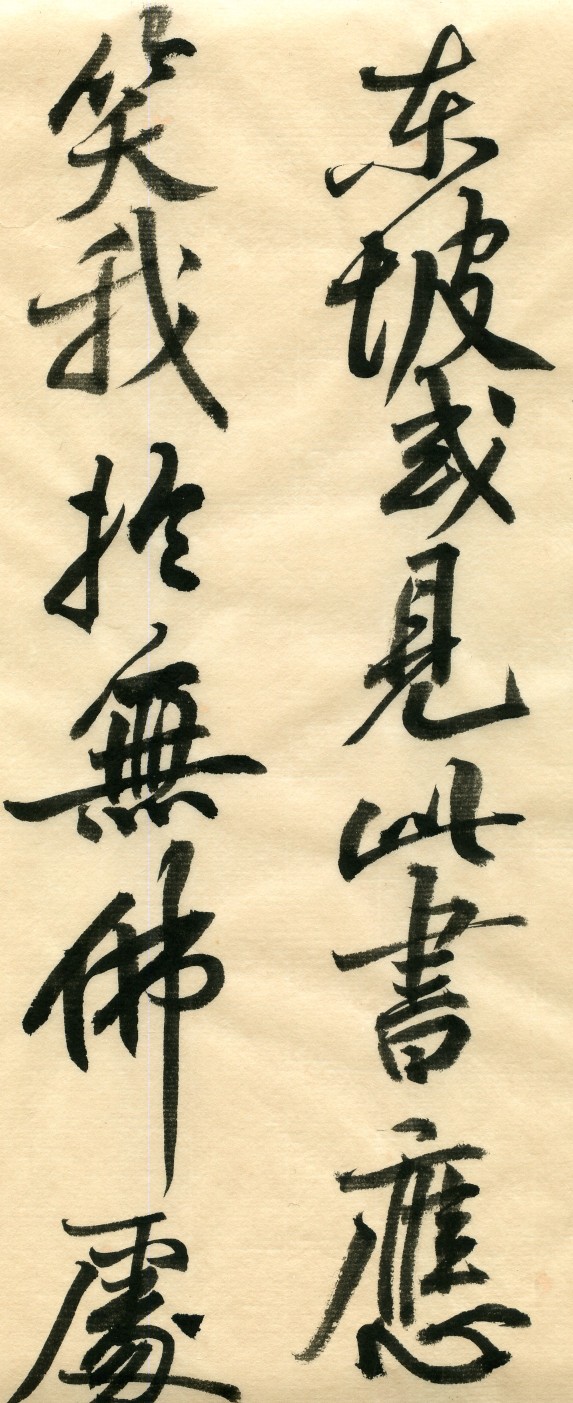 東坡或見此書應
笑我於無佛處